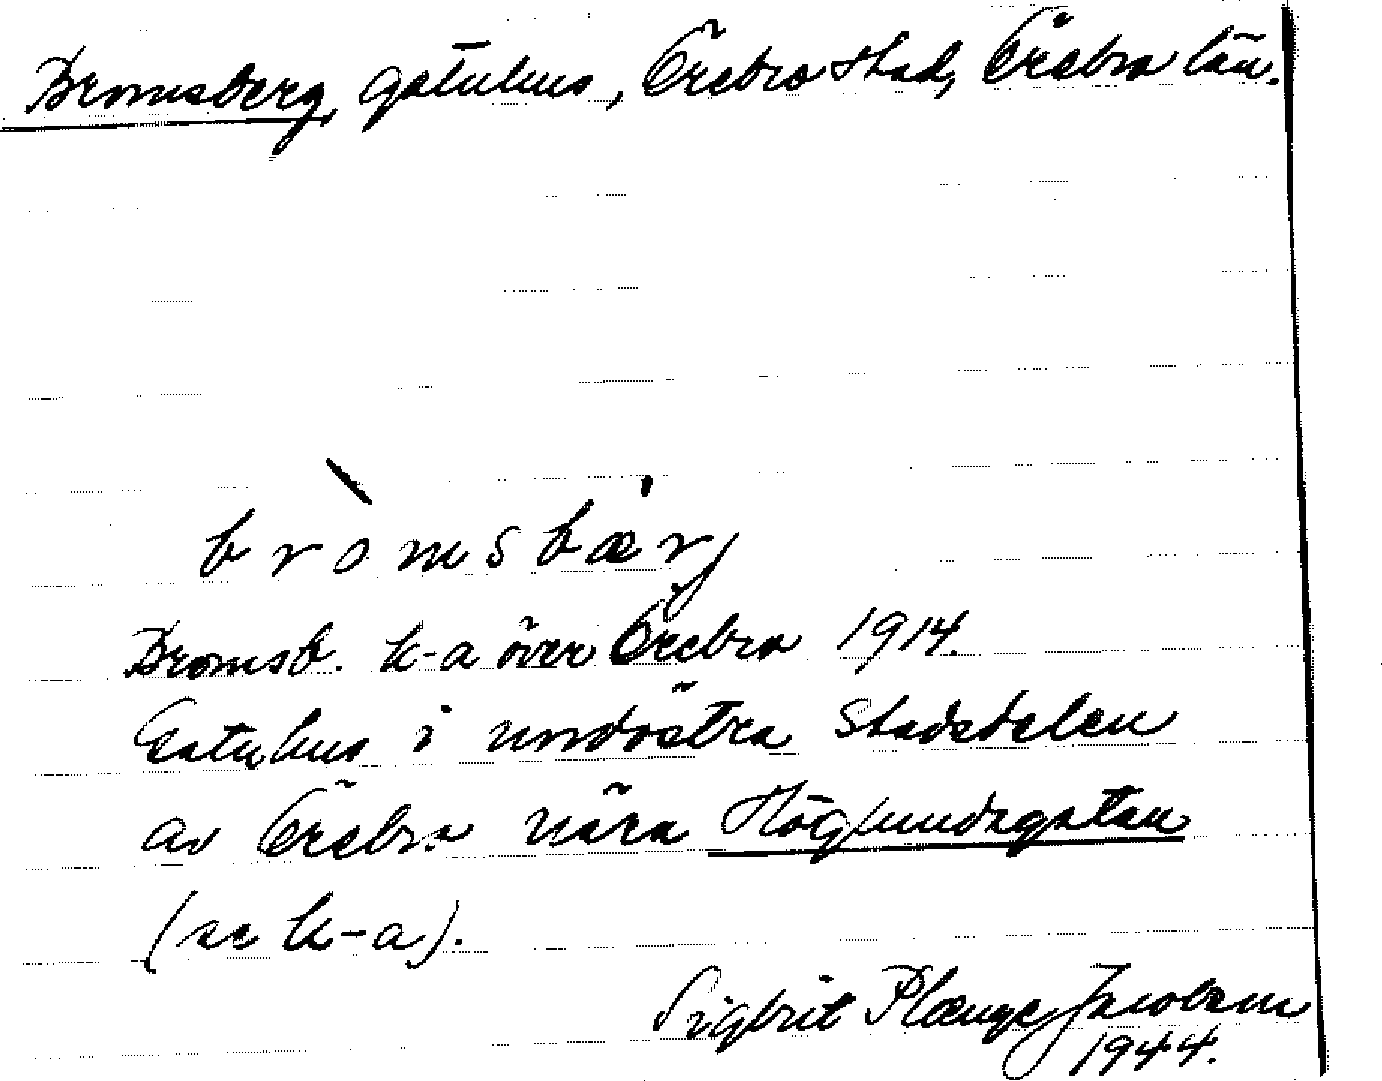 Bromsberg, gatuhus, Örebro stad, Örebro län.
bròmsbær'j
Bromsb. k-a över Örebro 1914.
Gatuhus i nordöstra stadsdelen
av Örebro nära Höglundagatan
(se k-a).
Sigbrit Plænge Jacobson
1944.